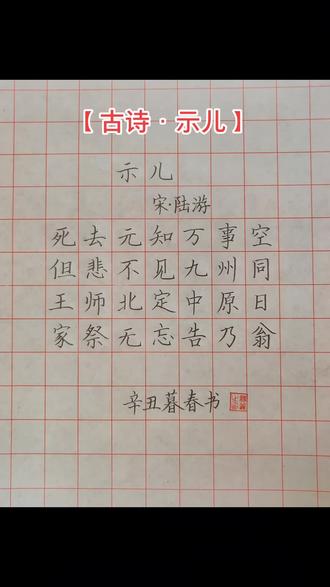 【古诗·示儿】
示儿
宋·陆游
死去元知万事空
但悲不见九州同
王师北定中原日
家祭无忘告乃翁
辛丑暮春书